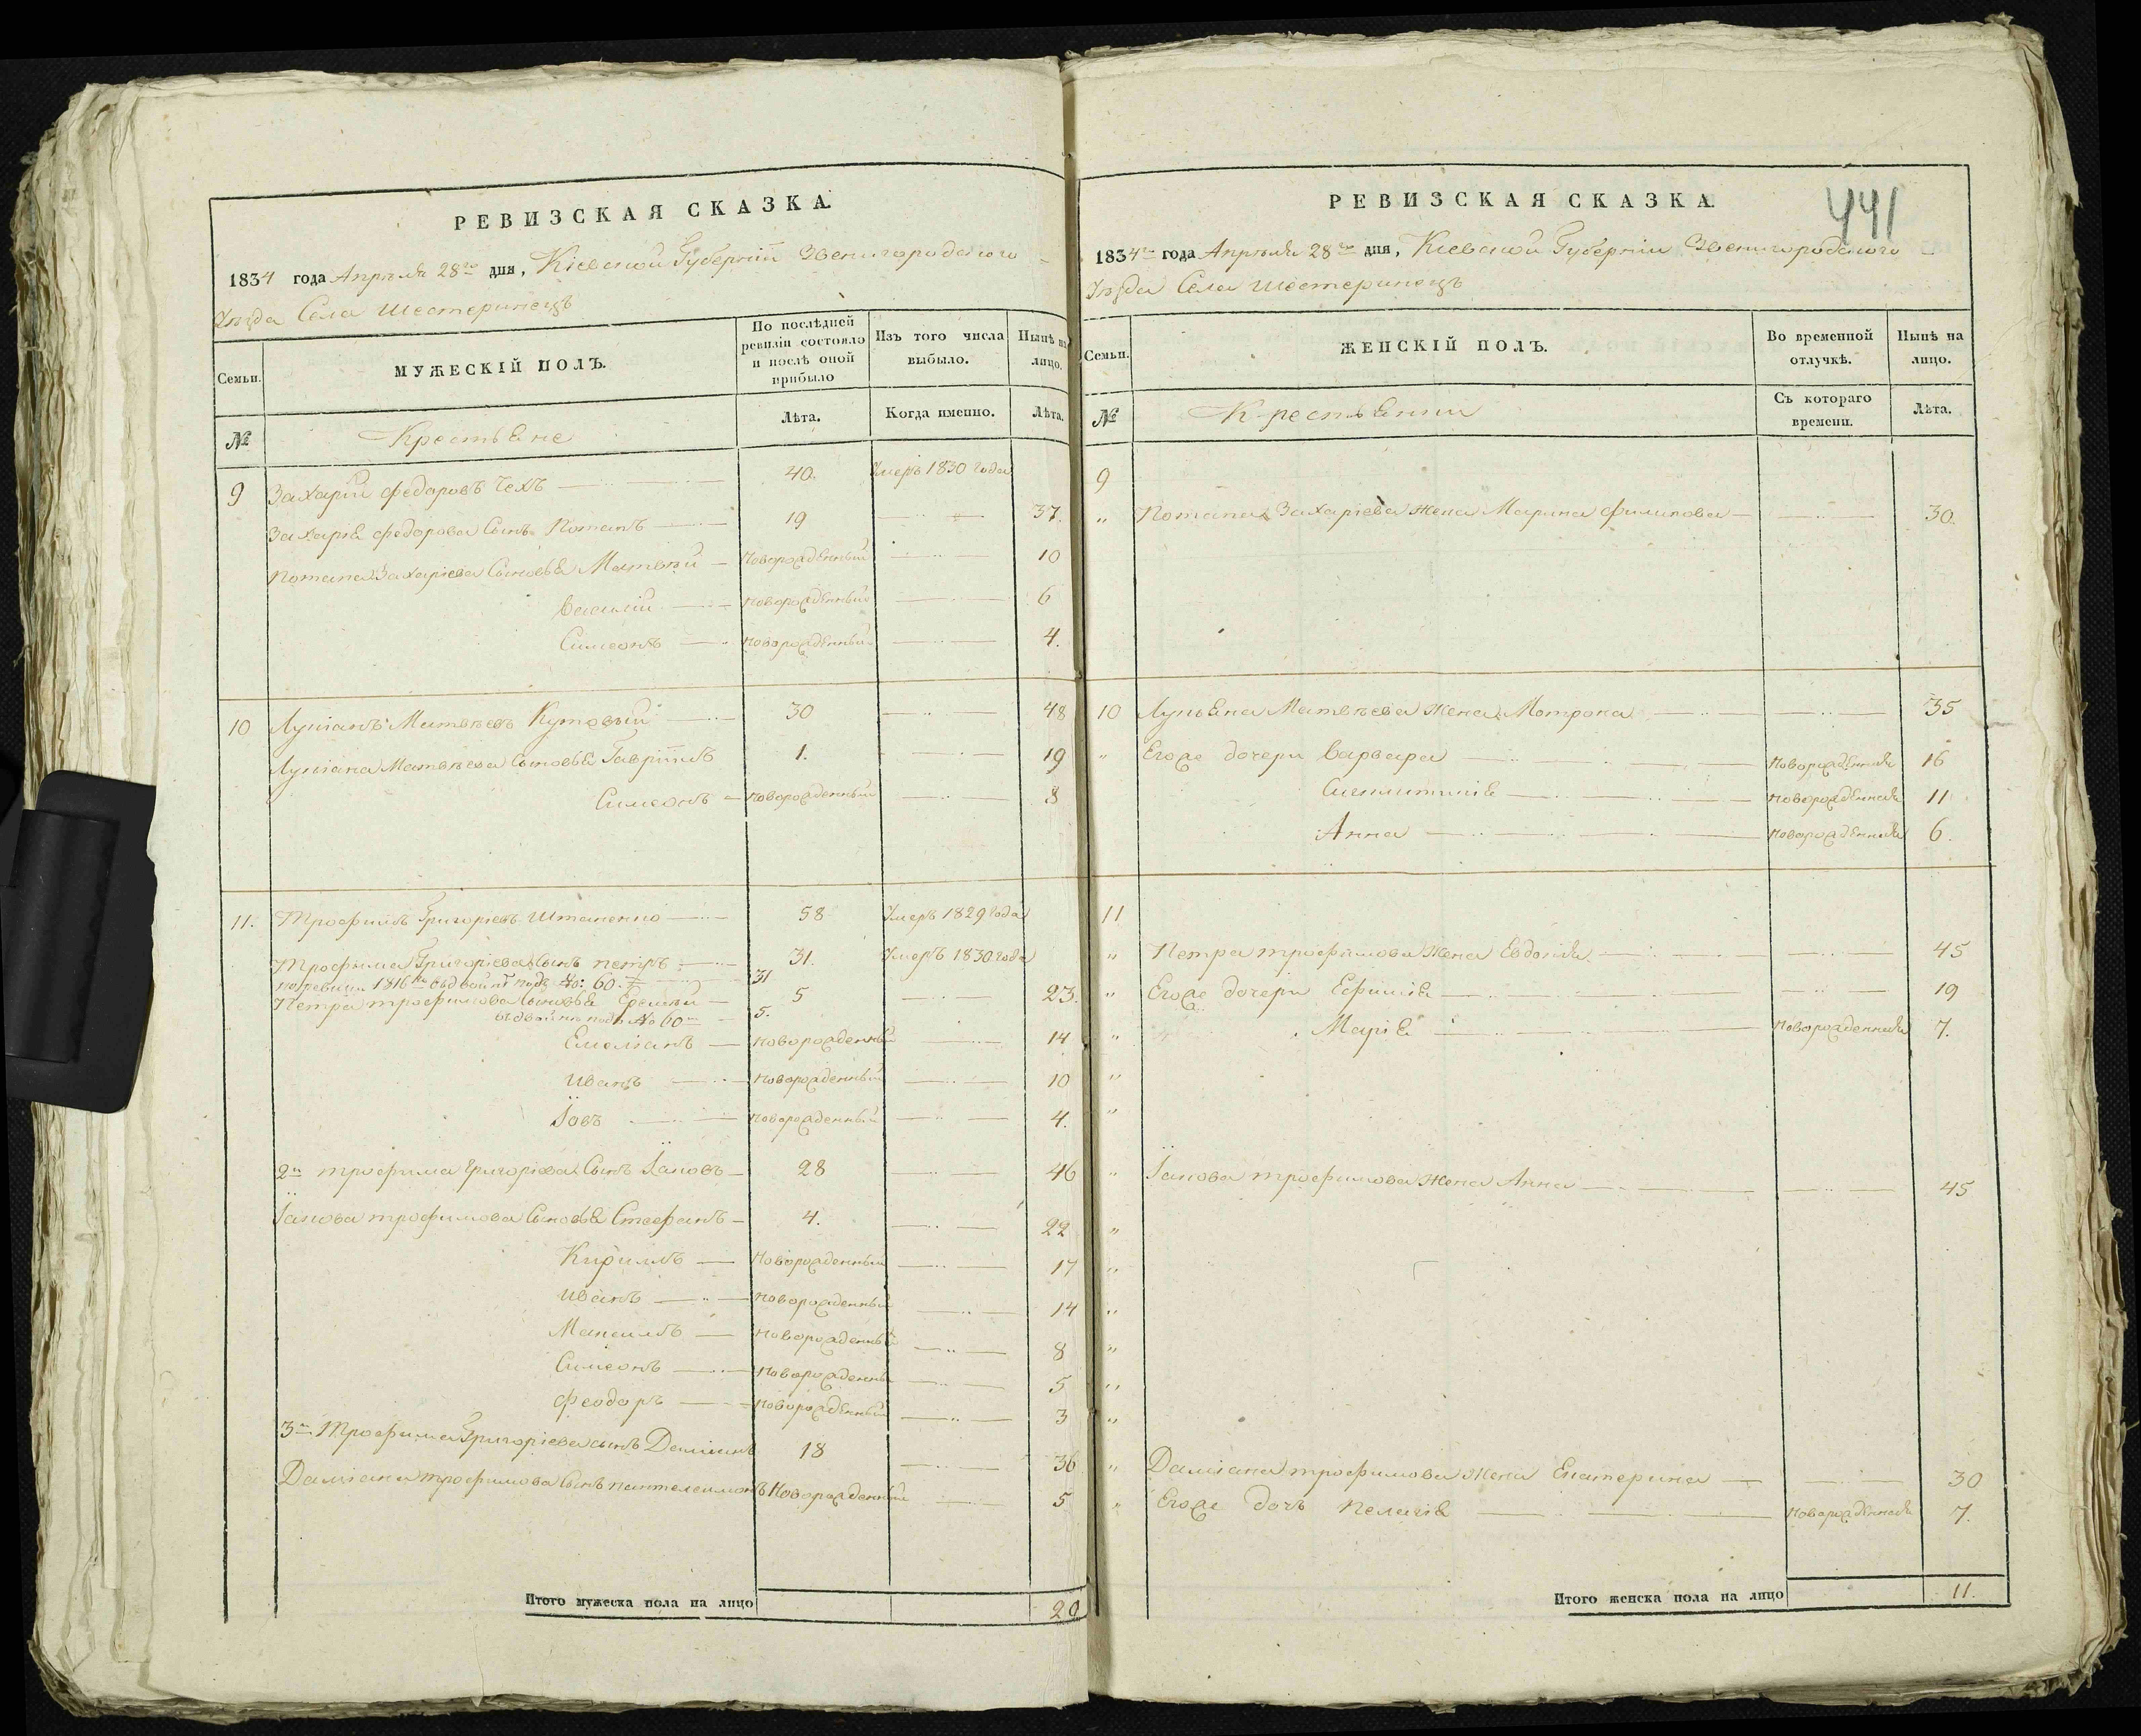 РЕВИЗСКАЯ СКАЗКА.
1834 года Апрѣля 28го дня, Кіевской Губерніи Звенигородского
Уѣзда Села Шестеринецъ
Семьи.
МУЖЕСКІЙ ПОЛЪ.
По послѣдней ревизіи состояло и послѣ оной прибыло
Изъ того числа выбыло.
Нынѣ на лицо.
№
Крестьяне
Лѣта.
Когда именно.
Лѣта.
9 Захарій Федоровъ Чехъ 40. Умеръ 1830 года
Захарія Федорова Сынъ Потапъ 19 37.
Потапа Захаріева Сыновья Матвѣй Новорожденный 10
Василій Новорожденный 6
Симеонъ Новорожденный 4.
10 Лукіанъ Матвѣевъ Кутовый 30 48
Лукіана Матвѣева Сыновья Гавріилъ 1. 19
Симеонъ Новорожденный 8
11. Трофимъ Григорьевъ Штаненко 58 Умеръ 1829 года
Трофима Григоріева Сынъ Петръ 31. Умеръ 1830 года
по ревизіи 1816го №: 60. 31
Петра Трофимова Сыновья Еремѣй 5 23.
подъ № 60м 5.
Емеліанъ Новорожденный 14
Иванъ Новорожденный 10
Іовъ Новорожденный 4.
2й Трофима Григоріева Сынъ Іаковъ 28 46
Іакова Трофимова Сыновья Стефанъ 4. 22
Кирилъ Новорожденный 17
Иванъ Новорожденный 14
Максимъ Новорожденный 8
Симеонъ Новорожденный 5
Феодоръ Новорожденный 3
3й Трофима Григоріева сынъ Даміанъ 18 36
Даміана Трофимова Сынъ Пантелеимонъ Новорожденный 5
Итого мужеска пола на лицо 20
441
РЕВИЗСКАЯ СКАЗКА.
1834го года Апрѣля 28го дня, Кіевской Губерніи Звенигородского
Уѣзда Села Шестеринецъ
Семьи.
ЖЕНСКІЙ ПОЛЪ.
Во временной отлучкѣ.
Нынѣ на лицо.
№
Крестьянки
Съ котораго времени.
Лѣта.
9
" Потапа Захаріева Жена Марина Филипова 30.
10 Лукьяна Матвѣева Жена Мотрона 35
" Егоже дочери Варвара Новорожденная 16
Новорожденная 11
Анна Новорожденная 6.
11
" Петра Трофимова Жена Евдокія 45
" Егоже дочери Ефимія 19
" Марія Новорожденная 7.
"
"
" Іакова Трофимова Жена Анна 45
"
"
"
"
"
"
" Даміана Трофимова Жена Екатерина 30
" Егоже дочь Пелагія Новорожденная 7.
Итого женска пола на лицо 11.